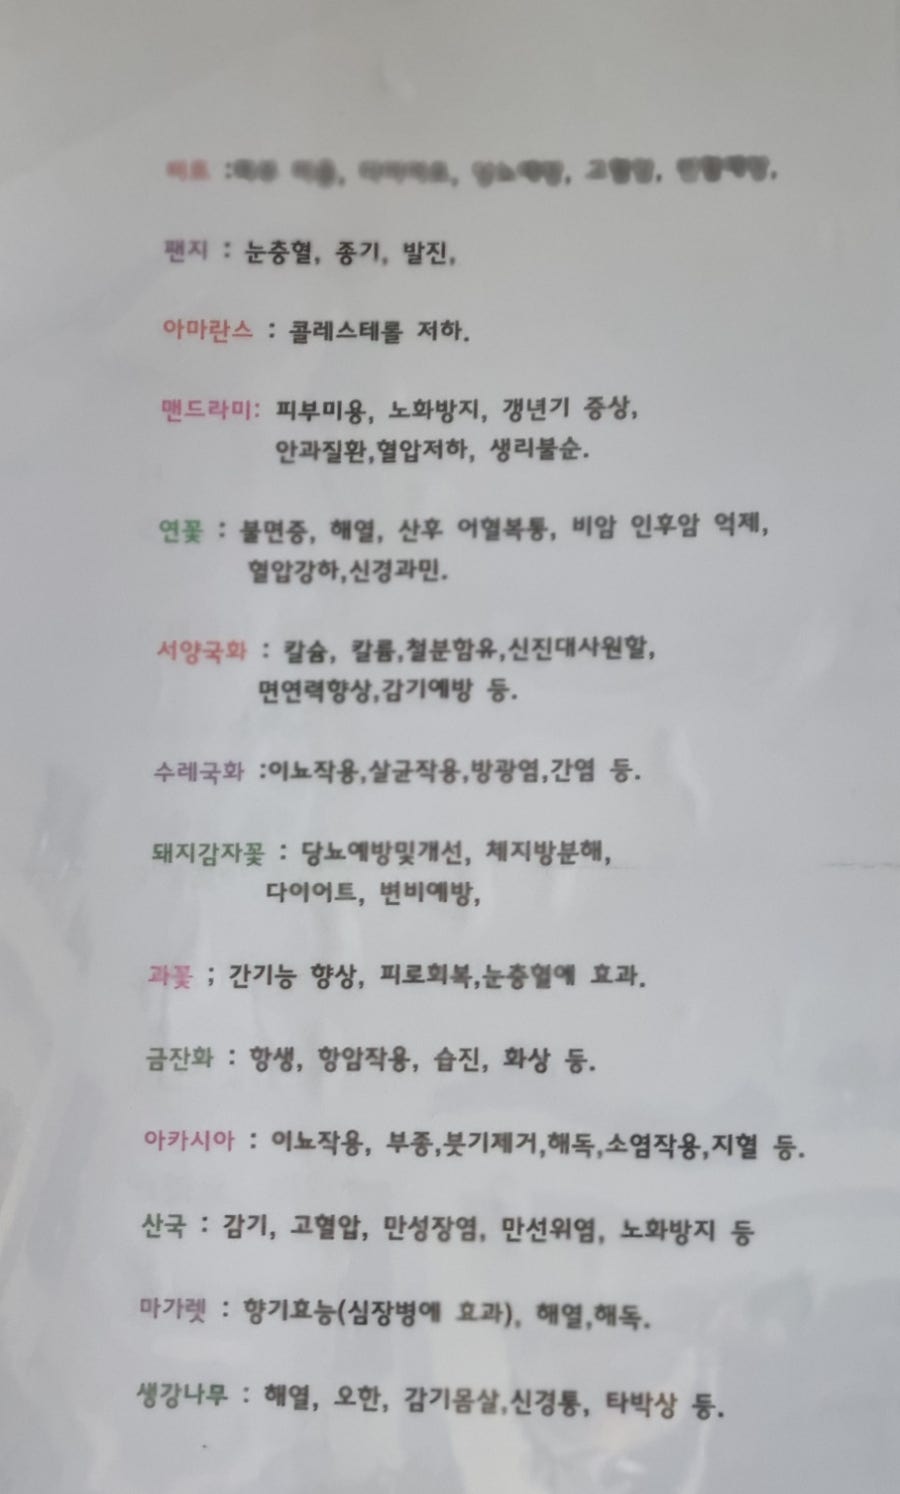 팬지 : 눈충혈, 종기, 발진,
아마란스 : 콜레스테롤 저하.
맨드라미: 피부미용, 노화방지, 갱년기 증상,
안과질환,혈압저하, 생리불순.
연꽃 : 불면증, 해열, 산후 어혈복통, 비암 인후암 억제,
혈압강하,신경과민.
서양국화 : 칼슘, 칼륨,철분함유,신진대사원할,
면연력향상,감기예방 등.
수레국화 :이뇨작용,살균작용,방광염,간염 등.
돼지감자꽃 : 당뇨예방및개선, 체지방분해,
다이어트, 변비예방,
과꽃 ; 간기능 향상, 피로회복,눈충혈에 효과.
금잔화 : 항생, 항암작용, 습진, 화상 등.
아카시아 : 이뇨작용, 부종,붓기제거,해독,소염작용,지혈 등.
산국 : 감기, 고혈압, 만성장염, 만선위염, 노화방지 등
마가렛 : 향기효능(심장병에 효과), 해열,해독.
생강나무 : 해열, 오한, 감기몸살,신경통, 타박상 등.